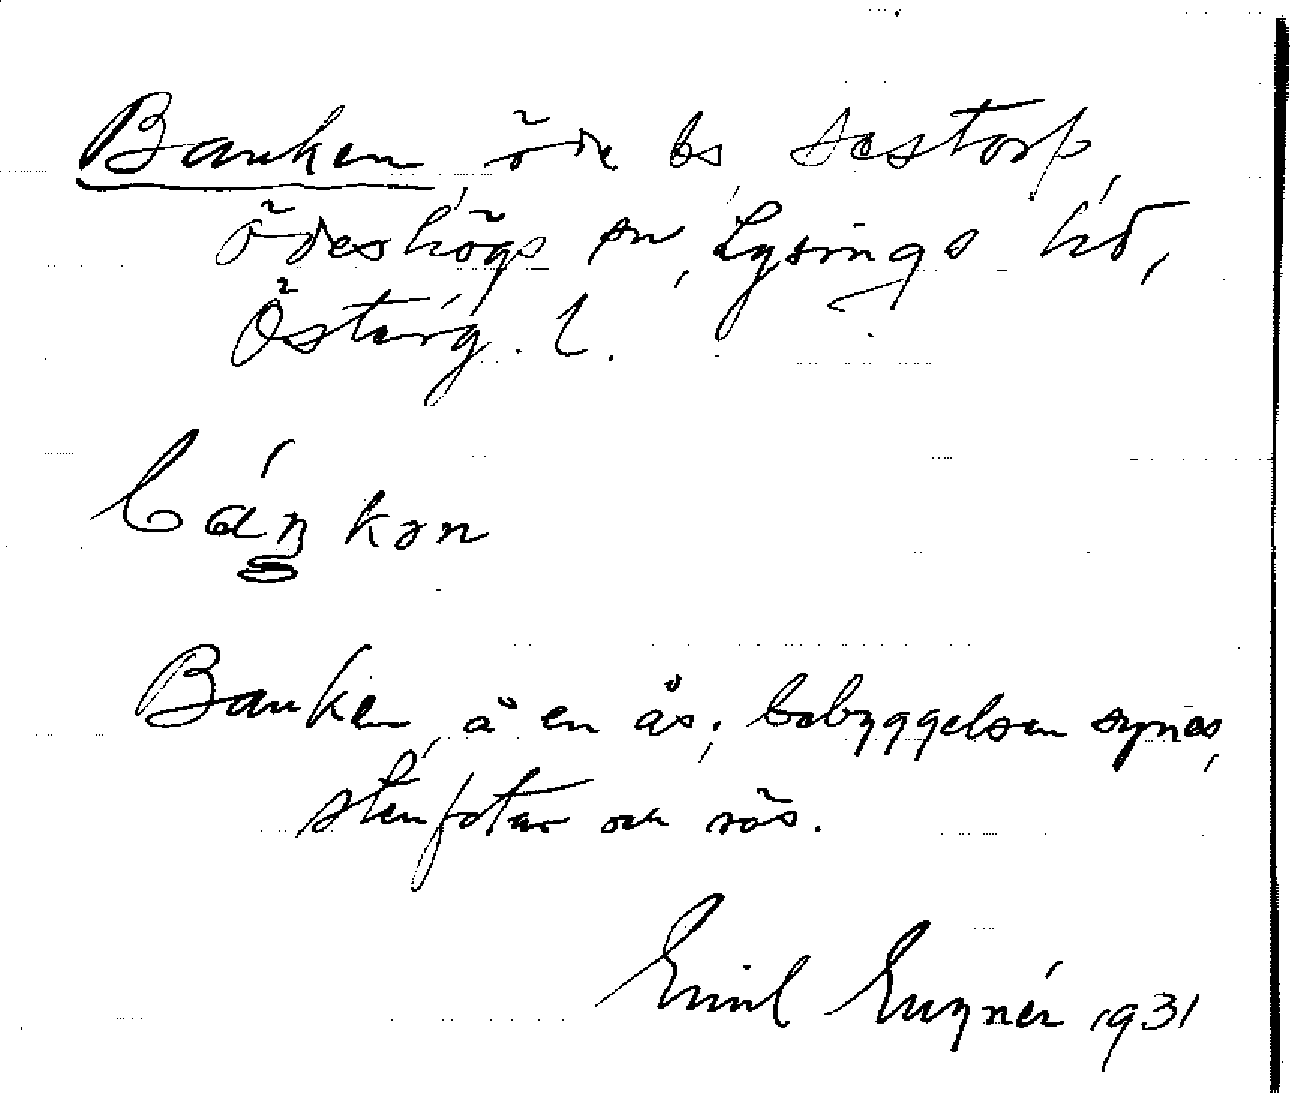 Banken, öde bs, Sestorp,
Ödeshögs sn, Lysings hd,
Österg. l.
báŋkən
Banken, å en ås; bebyggelsen synes,
stenfotar och rös.
Emil Eugnér 1931